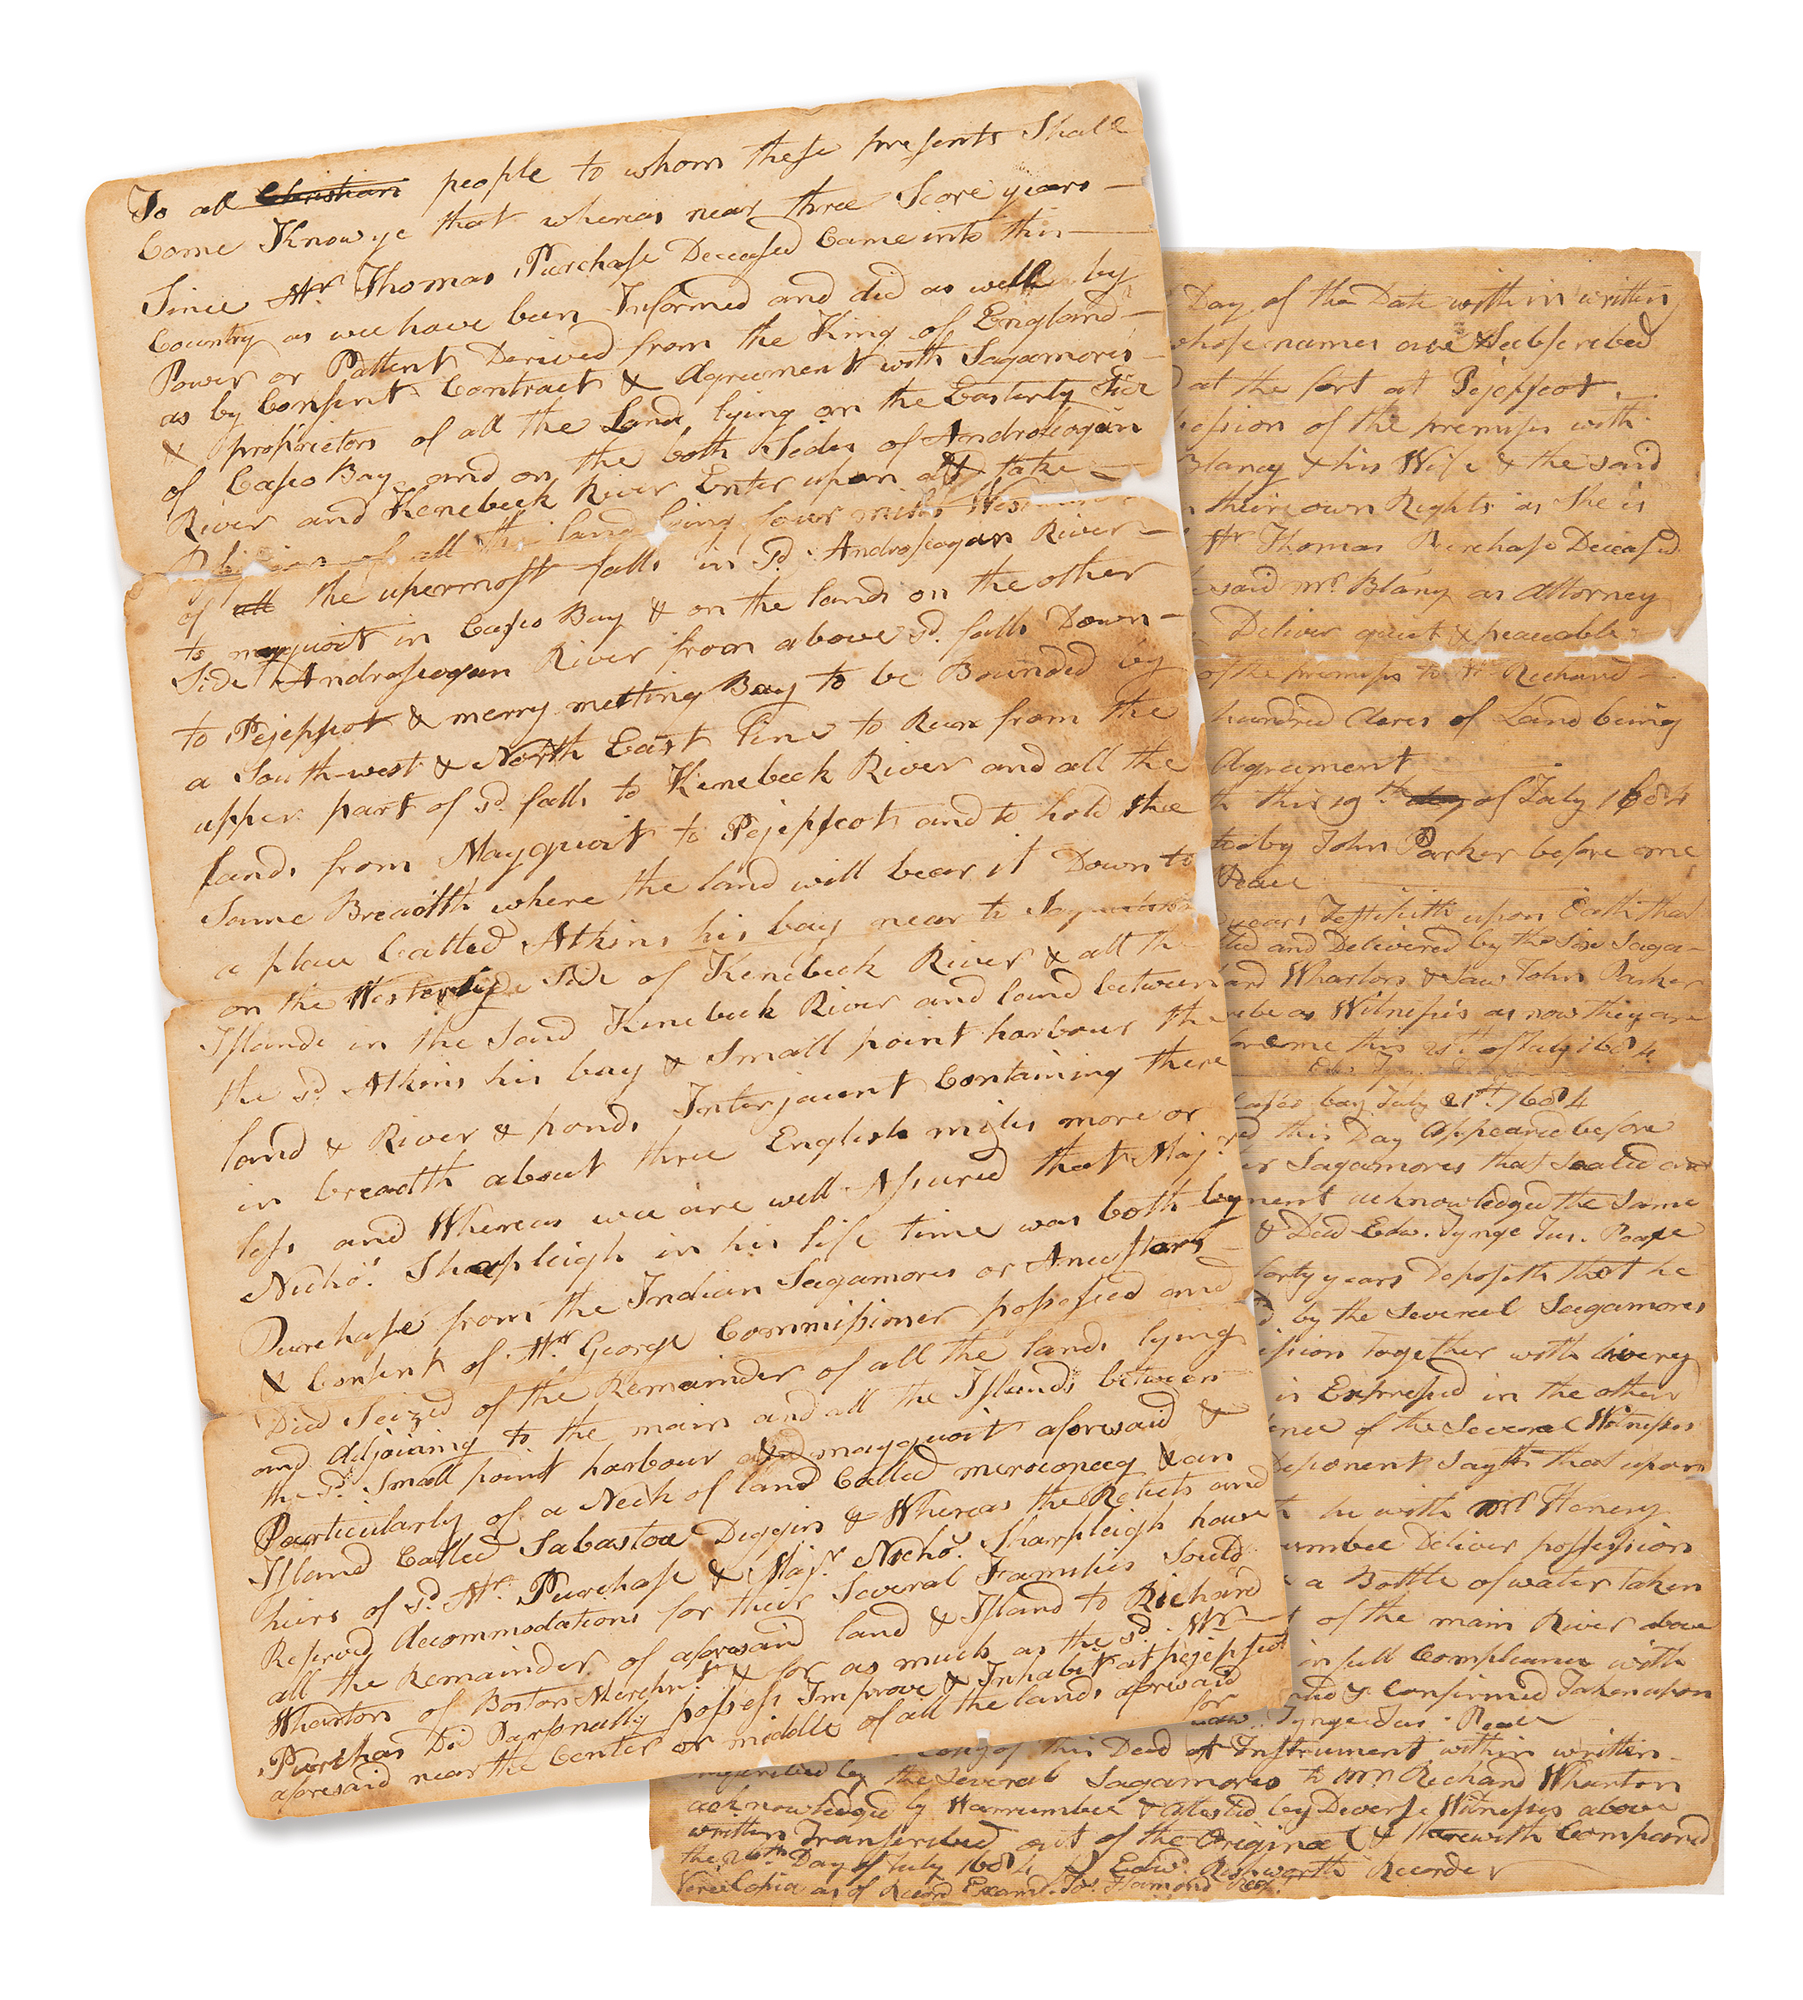 To all Christian people to whom these presents Shall
Come Know ye that whereas near three Score years
Since Mr. Thomas Purchase Deceased Came into this
Country as wee have been Informed and did as well by
Power or Pattent Derived from the King of England
as by Consent Contract & Agreement with Sagamores
& proprietors of all the Land lying on the Easterly Side
of Casco Bay and on the both Sides of Androscogin
River and Kenebeck River Enter upon & take
of all this land lying four miles West
of all the upermost falls in sd. Androscogan River
to maquoit in Casco Bay & on the lands on the other
Side Androscogan River from above sd. falls Down
to Pejepscot & merry meeting Bay to be Bounded by
a South-west & North East line to Run from the
upper part of sd. falls to Kenebeck River and all the
lands from Mayquoit to Pejepscot and to hold the
Same Breadth where the land will bear it Down to
a place Called Atkins his bay near to
on the Westerly Side of Kenebeck River & all the
Islands in the Said Kenebeck River and land between
the sd. Atkins his bay & Small point harbour the
land & River & ponds Interjacent Containing there
in breadth about three English miles more or
less and Whereas wee are well Asured that Majr.
Nicho. Sharpleigh in his life time was both by
Purchase from the Indian Sagamores or Ancestors
& Consent of Mr. George Commissioner possessed and
Died Seized of the Remainder of all the lands lying
and Adjoining to the main and all the Islands between
the sd. Small point harbour and mayquoit aforesaid &
Particularly of a Neck of land Called meroconeeg & an
Island Called Sabaston Diggin & Whereas the Relicts and
heirs of sd. Mr. Purchase & Majr. Nicho. Sharpleigh have
Reserved Accommodations for their Several Families Sould
all the Remainder of aforesaid land & Island to Richard
Wharton of Boston Merchnt. & for as much as the sd. Mr.
Purchas Did Parsonally possess Improve & Inhabit at Pejepscot
aforesaid near the Center or middle of all the lands aforesaid
Day of the Date within written
whose names are Subscribed
at the fort at Pejepscot
of the premises with
Blaney & his Wife & the said
their own Rights as She is
Mr. Thomas Purchase Deceased
said Mr. Blany as Attorney
Deliver quiet & peaceable
of the premises to Mr. Richard
hundred Acres of Land being
Agreement
this 19th day of July 1684
to by John Parker before me
Peace
years Testifieth upon Oath that
and Delivered by the Six Saga-
Wharton & Saw John Parker
as Witnesses as now they are
me this 21th. of July 1684
Casco bay July 21th. 1684
this Day Appeared before
Sagamores that Sealed and
acknowledged the Same
& Deed Edw. Tynge Jus. Peace
forty years Deposeth that he
by the Several Sagamores
Together with livery
is Expressed in the other
of the Several Witnesses
Deponent Sayth that upon
he with Mr. Henery
Deliver possession
a Bottle of water taken
of the main River above
in full Compliance with
& Confirmed Taken upon
Tynge Jus. Peace
Copy of this Deed or Instrument within written
by the Several Sagamores to Mr. Richard Wharton
acknowledged by Warrumbee & attested by Diverse Witnesses above
written Transcribed out of the Original & therewith Compared
the Day of July 1684 Edw. Rishworth Recorder
as of Record Examd. Jos. Hamond Regr.